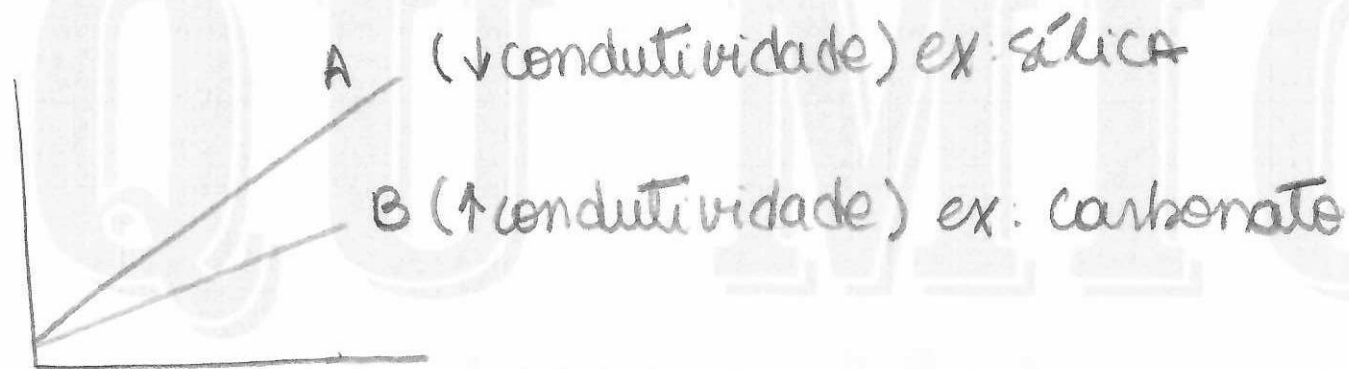 A (↓condutividade) ex: sílica
B (↑condutividade) ex: carbonato
QU MIC